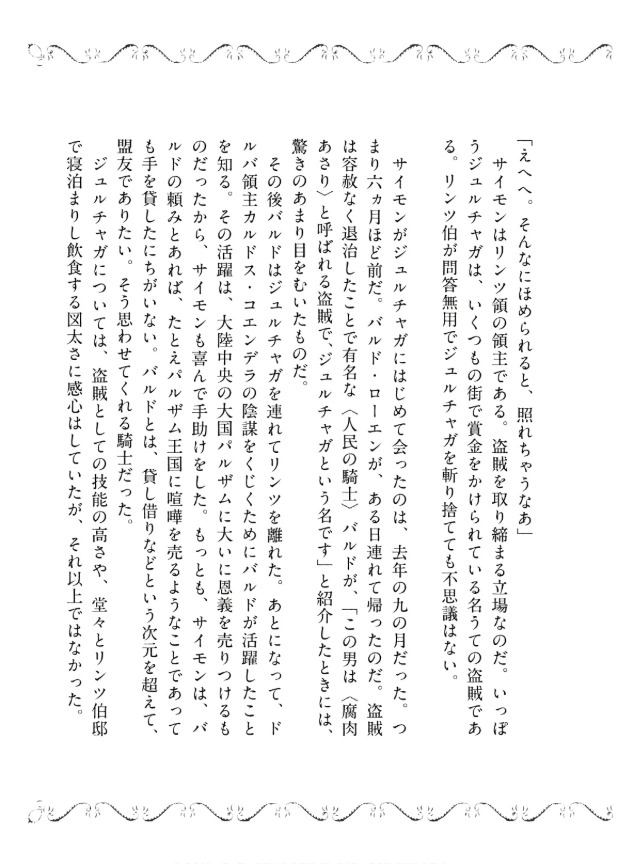 「えへへ。そんなにほめられると、照れちゃうなあ」
　サイモンはリンツ領の領主である。盗賊を取り締まる立場なのだ。いっぽ
うジュルチャガは、いくつもの街で賞金をかけられている名うての盗賊であ
る。リンツ伯が問答無用でジュルチャガを斬り捨てても不思議はない。
　サイモンがジュルチャガにはじめて会ったのは、去年の九の月だった。つ
まり六ヵ月ほど前だ。バルド・ローエンが、ある日連れて帰ったのだ。盗賊
は容赦なく退治したことで有名な〈人民の騎士〉バルドが、「この男は〈腐肉
あさり〉と呼ばれる盗賊で、ジュルチャガという名です」と紹介したときには、
驚きのあまり目をむいたものだ。
　その後バルドはジュルチャガを連れてリンツを離れた。あとになって、ド
ルバ領主カルドス・コエンデラの陰謀をくじくためにバルドが活躍したこと
を知る。その活躍は、大陸中央の大国パルザムに大いに恩義を売りつけるも
のだったから、サイモンも喜んで手助けをした。もっとも、サイモンは、バ
ルドの頼みとあれば、たとえパルザム王国に喧嘩を売るようなことであって
も手を貸したにちがいない。バルドとは、貸し借りなどという次元を超えて、
盟友でありたい。そう思わせてくれる騎士だった。
　ジュルチャガについては、盗賊としての技能の高さや、堂々とリンツ伯邸
で寝泊まりし飲食する図太さに感心はしていたが、それ以上ではなかった。